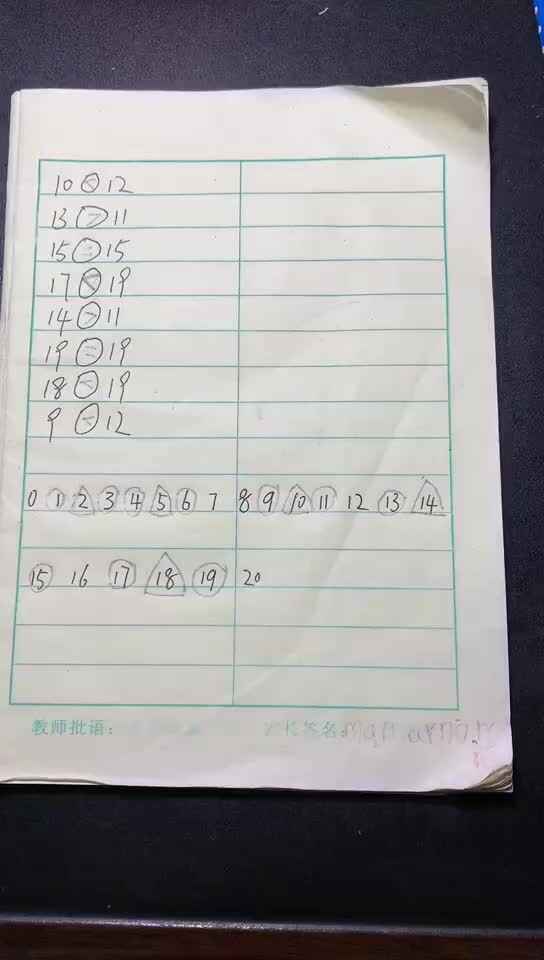 10 < 12
13 > 11
15 = 15
17 < 19
14 > 11
19 = 19
18 < 19
9 < 12
0 1 2 3 4 5 6 7 8 9 10 11 12 13 14
15 16 17 18 19 20
教师批语： 家长签名: